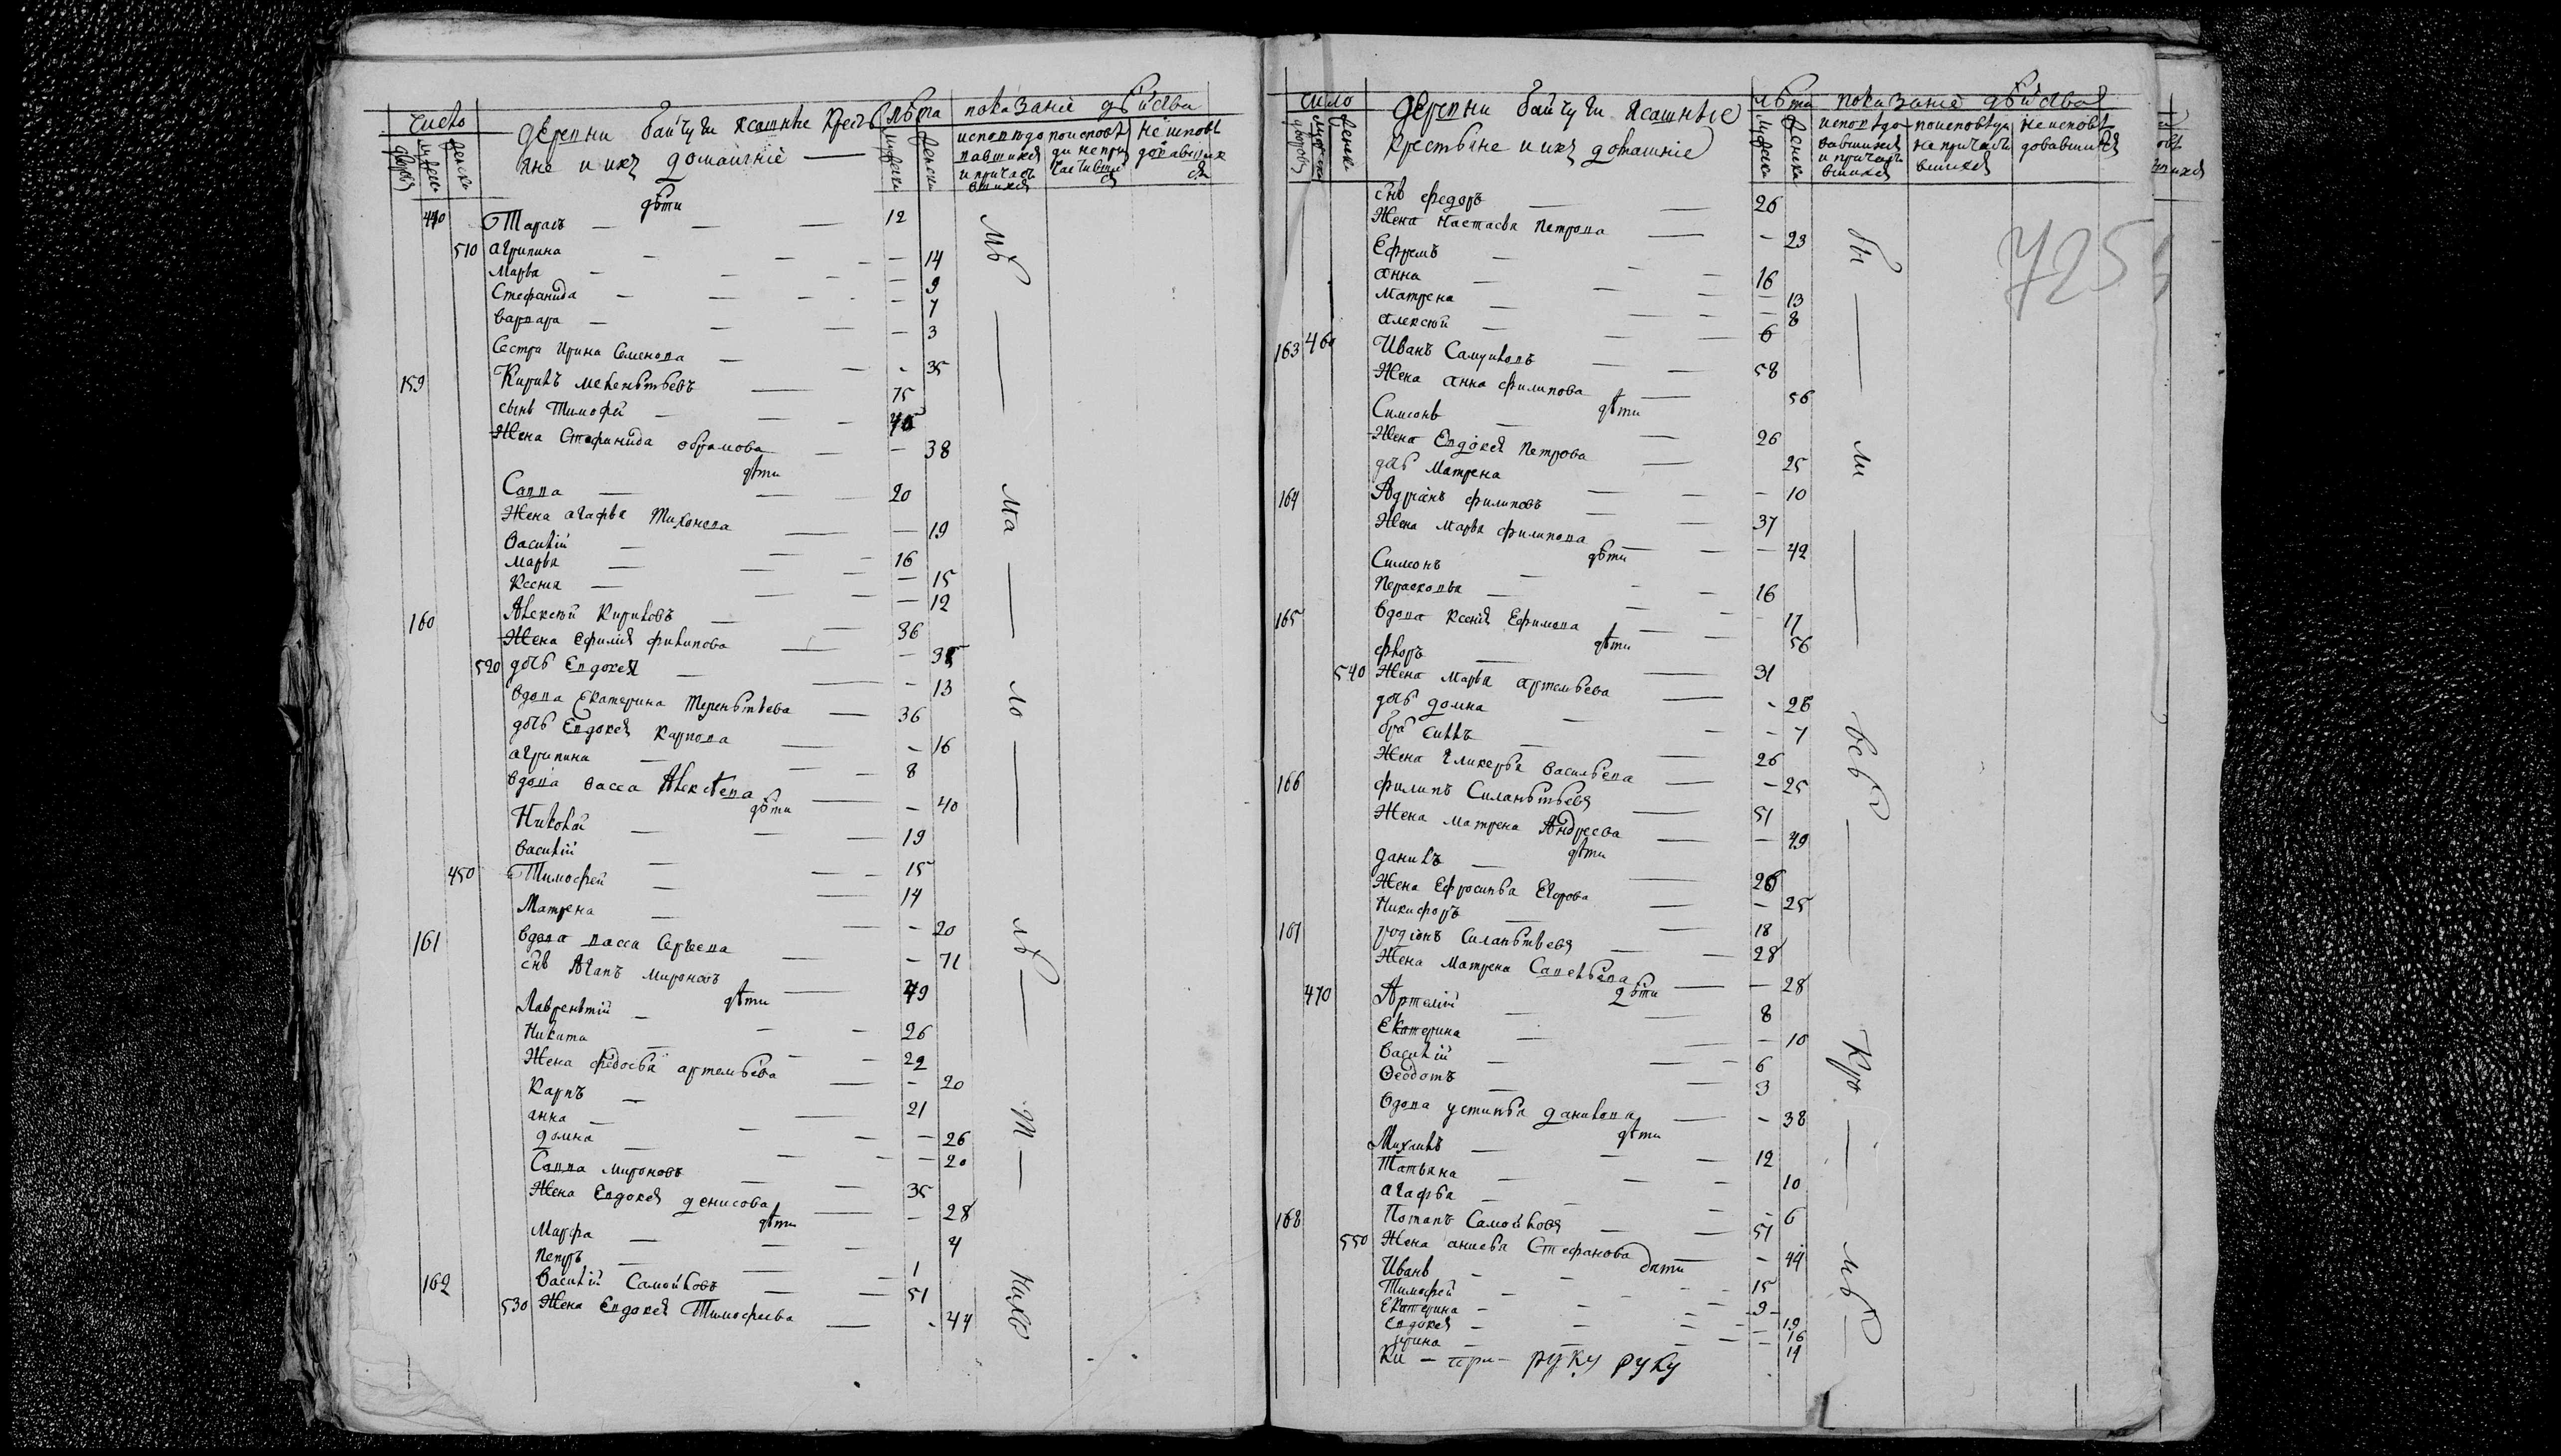 число
деревни байчуги ясашные кресть
яне и ихъ домашние
лѣта
показание дѣйства
дворовъ
мужеска
женска
мужеска
женска
исповедо
вавшихся
и причасти
вшихся
поисповѣ
ди непри
частивши
ся
не исповѣ
довавших
ся
дѣти
440 Тарасъ 12
510 Агрипина 14
Марья 9
Стефанида 7
варвара 3
Сестра Ирина Семенова 35
159 Кирилъ мелентьевъ 75
сынъ Тимофей
Жена Стефанида обрамова 38
дѣти
Савва 20
Жена агафья Тихонова 19
Василій 16
марья 15
Ксения 12
160 Алексѣй Кириловъ 36
Жена Ефимия филипова 35
520 дочь Евдокея 13
вдова Екатерина Терентьева 36
дочь Евдокея Карпова 16
агрипина 8
вдова васса Алексѣева 40
дѣти
Николай 19
василій 15
450 Тимофей 14
Матрена 20
161 вдова васса Сергѣева 71
снъ Агапъ мироновъ 49
дѣти
Лаврентий 26
Никита 22
Жена федосья артемьева 20
Карпъ 21
анна 26
домна 20
Савва мироновъ 35
Жена Евдокея денисова 28
дѣти
Марфа 4
Петръ 1
162 Василій Самойловъ 51
530 Жена Евдокея Тимофеева 44
мѣ
ма
ло
лѣ
т
число
деревни байчуги ясашные
крестьяне и ихъ домашние
лѣта
показание дѣйства
дворовъ
мужеска
женска
мужеска
женска
исповѣдо
вавшихся
и причасти
вшихся
поисповѣди
не причасти
вшихся
не исповѣ
довавшихся
725
снъ федоръ 26
Жена Настасья Петрова 23
Ефремъ 16
анна 13
Матрена 8
алексѣй 6
163 460 Иванъ Самуиловъ 58
Жена анна филипова 56
дѣти
Симеонъ 26
Жена Евдокея Петрова 25
дочь Матрена 10
164 Адрианъ филиповъ 37
Жена марья филипова 42
дѣти
Симеонъ 16
Парасковья 17
165 вдова Ксения Ефимова 56
дѣти
флоръ 31
540 Жена марья артемьева 26
дочь домна 7
братъ силъ 26
Жена гликерья васильева 25
166 филипъ Силантьевъ 51
Жена матрена Андреева 49
дѣти
данилъ 26
Жена Ефросинья Егорова 25
Никифоръ 18
167 родионъ Силантьевъ 28
Жена Матрена Савельева 28
дѣти
470 Артемий 8
Екатерина 10
Василій 6
Феодотъ 3
вдова устинья данилова 38
дѣти
Михаилъ 12
Татьяна 10
агафья 6
168 Потапъ Самойловъ 51
550 Жена анисья Стефанова 44
дѣти
Иванъ 15
Тимофей 9
Екатерина 19
Евдокея 16
ирина 14
бы
ли
всѣ
руку руку